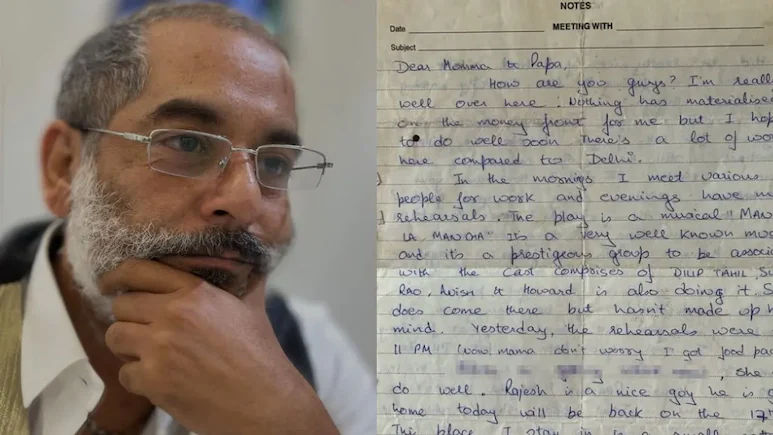 NOTES
Date
MEETING WITH
Subject
Dear Momma & Papa,
How are you guys? I'm reall
well over here. Nothing has materialise
on the money front for me but I hop
to do well soon There's a lot of wor
here compared to Delhi.
In the mornings I meet various
people for work and evenings have m
rehearsals. The play is a musical "MAN
LA MANCHA" It's a very well known mus
and it's a prestigeous group to be associ
with the cast comprises of DILIP TAHIL SU
RAO, Avish & Howard is also doing it. S
does come there but hasn't made up h
mind. Yesterday, the rehearsals were
11 PM (now mama don't worry I got food pac
, She
do well. Rajesh is a nice guy he is g
home today will be back on the 17th
The place I stay in is a small